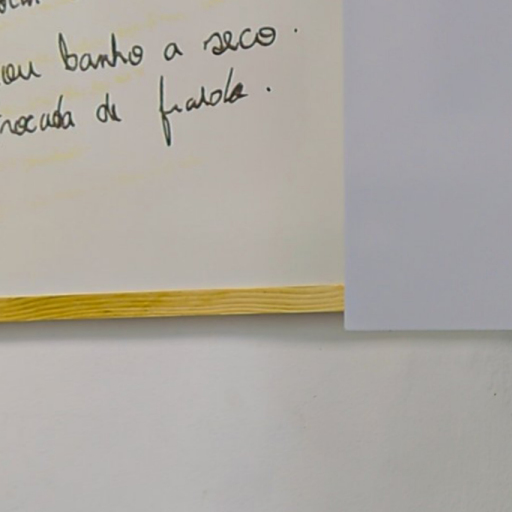 ou banho a seco.
rocada de fralda.